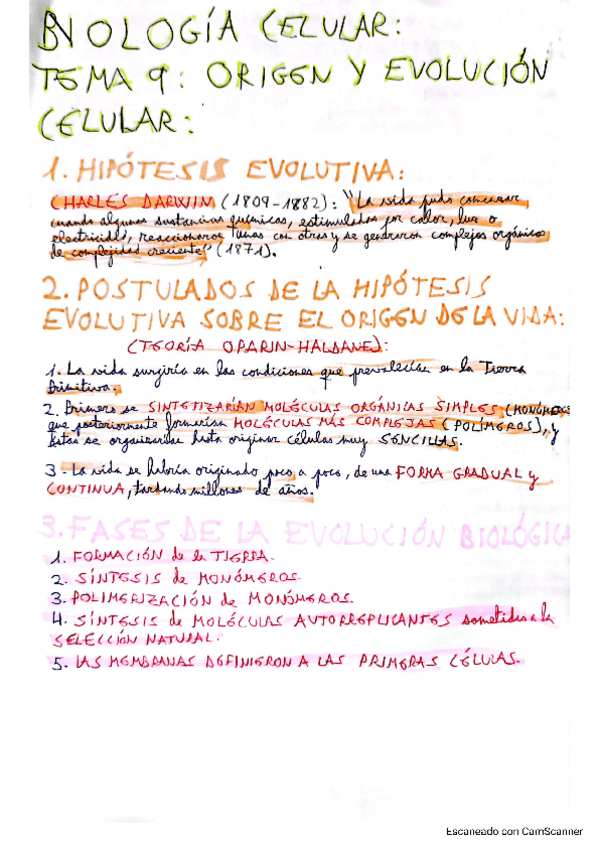 BIOLOGÍA CELULAR:
TEMA 9: ORIGEN Y EVOLUCIÓN
CELULAR:
1. HIPÓTESIS EVOLUTIVA:
CHARLES DARWIM (1809-1882): "La vida pudo comenzar,
cuando algunas sustancias químicas, estimuladas por calor, luz o
electricidad, reaccionaron unas con otras y se generaron complejos orgánicos
de complejidad creciente" (1871).
2. POSTULADOS DE LA HIPÓTESIS
EVOLUTIVA SOBRE EL ORIGEN DE LA VIDA:
(TEORÍA OPARIN-HALDANE):
1. La vida surgiría en las condiciones que prevalecían en la Tierra
Primitiva.
2. Primero se SINTETIZARÍAN MOLÉCULAS ORGÁNICAS SIMPLES (MONÓMEROS
que posteriormente formarían MOLÉCULAS MÁS COMPLEJAS (POLÍMEROS), y
éstas se organizarían hasta originar células muy SENCILLAS.
3- La vida se habría originado poco a poco, de una FORMA GRADUAL y
CONTINUA, tardando millones de años.
3. FASES DE LA EVOLUCIÓN BIOLÓGICA
1. FORMACIÓN de la TIERRA.
2. SÍNTESIS de MONÓMEROS.
3. POLIMERIZACIÓN de MONÓMEROS.
4. SÍNTESIS de MOLÉCULAS AUTORREPLICANTES sometidas a la
SELECCIÓN NATURAL.
5. LAS MEMBRANAS DEFINIERON A LAS PRIMERAS CÉLULAS.
Escaneado con CamScanner